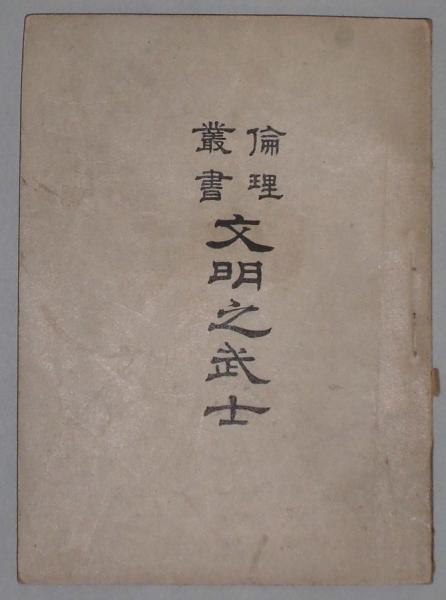 倫理
叢書
文明之武士